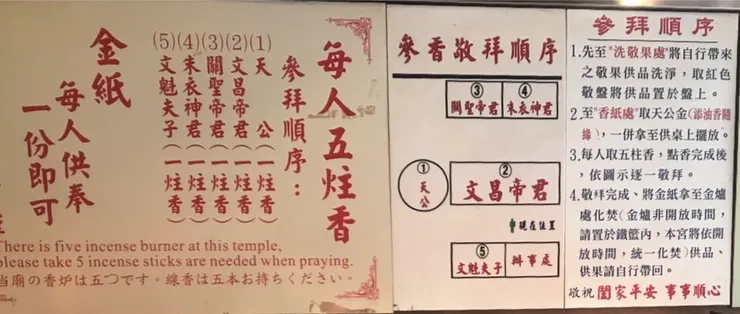 每人五炷香
參拜順序：
(1)天　公(一炷香)
(2)文昌帝君(一炷香)
(3)關聖帝君(一炷香)
(4)朱衣神君(一炷香)
(5)文魁夫子(一炷香)
金紙
每人供奉
一份即可
There is five incense burner at this temple,
please take 5 incense sticks are needed when praying.
当廟の香炉は五つです。線香は五本お持ちください。
參香敬拜順序
③
關聖帝君
④
朱衣神君
①
天公
②
文昌帝君
現在位置
⑤
文魁夫子
辦事處
參拜順序
1.先至"洗敬果處"將自行帶來
之敬果供品洗淨，取紅色
敬盤將供品置於盤上。
2.至"香紙處"取天公金(添油香隨
緣)，一併拿至供桌上擺放。
3.每人取五柱香，點香完成後
，依圖示逐一敬拜。
4.敬拜完成、將金紙拿至金爐
處化焚(金爐非開放時間，
請置於鐵籃內，本宮將依開
放時間，統一化焚)供品、
供果請自行帶回。
敬祝 闔家平安 事事順心